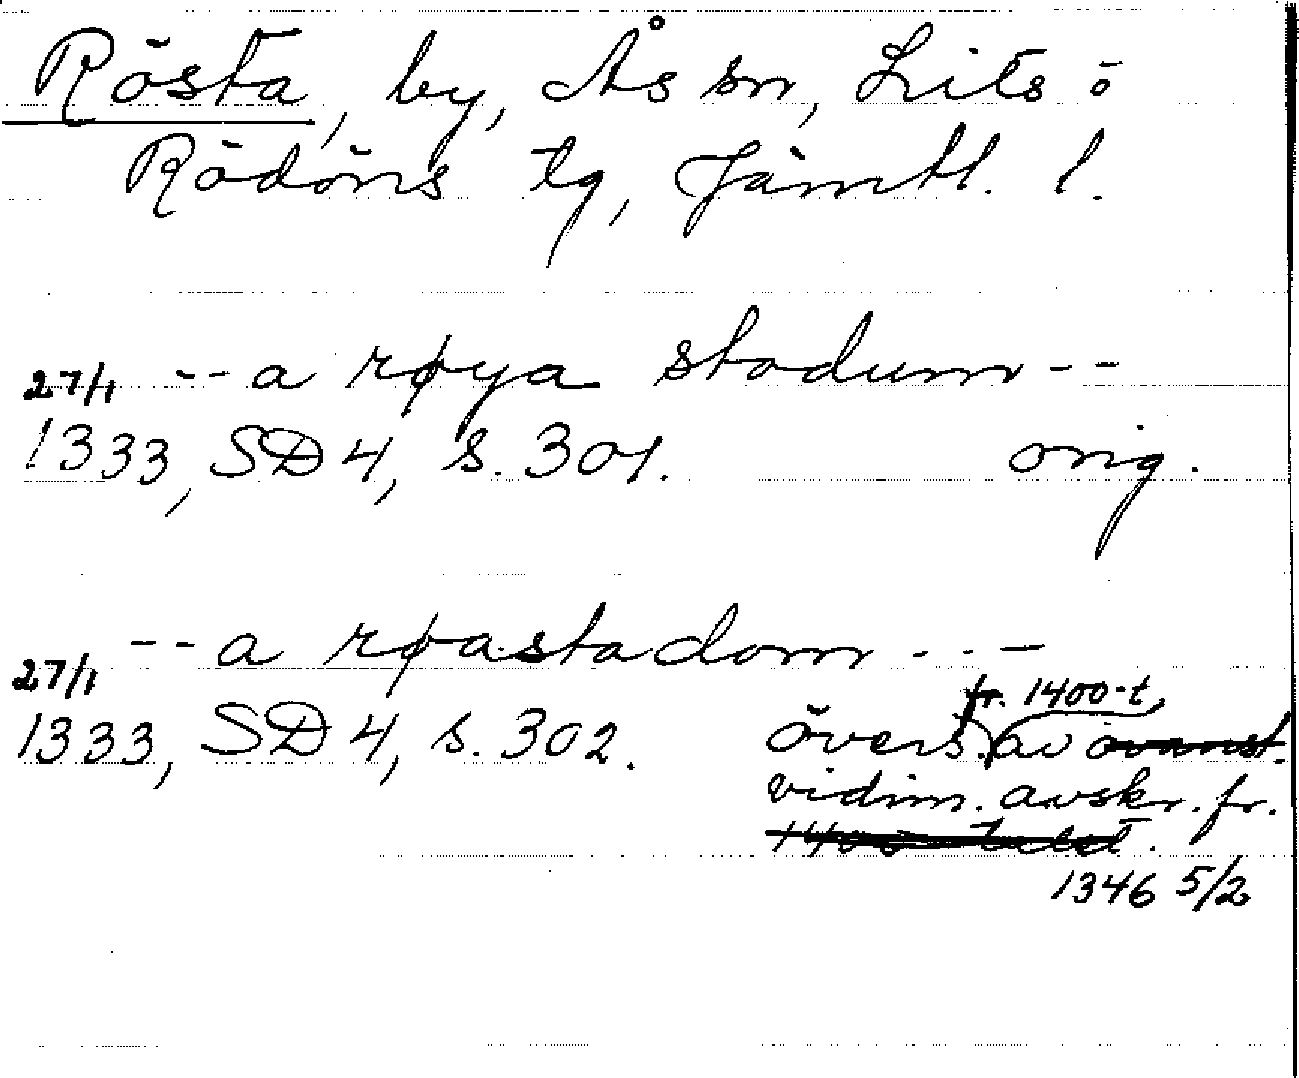 Rösta, by, Ås sn, Lits o
Rödöns tg, Jämtl. l.
27/1 -- a røya stadum --
1333, SD 4, s. 301. orig.
27/1 -- a røastadom ---
fr. 1400-t.
1333, SD 4, s. 302. övers. av ovanst.
vidim. avskr. fr.
1400-talet.
1346 5/2